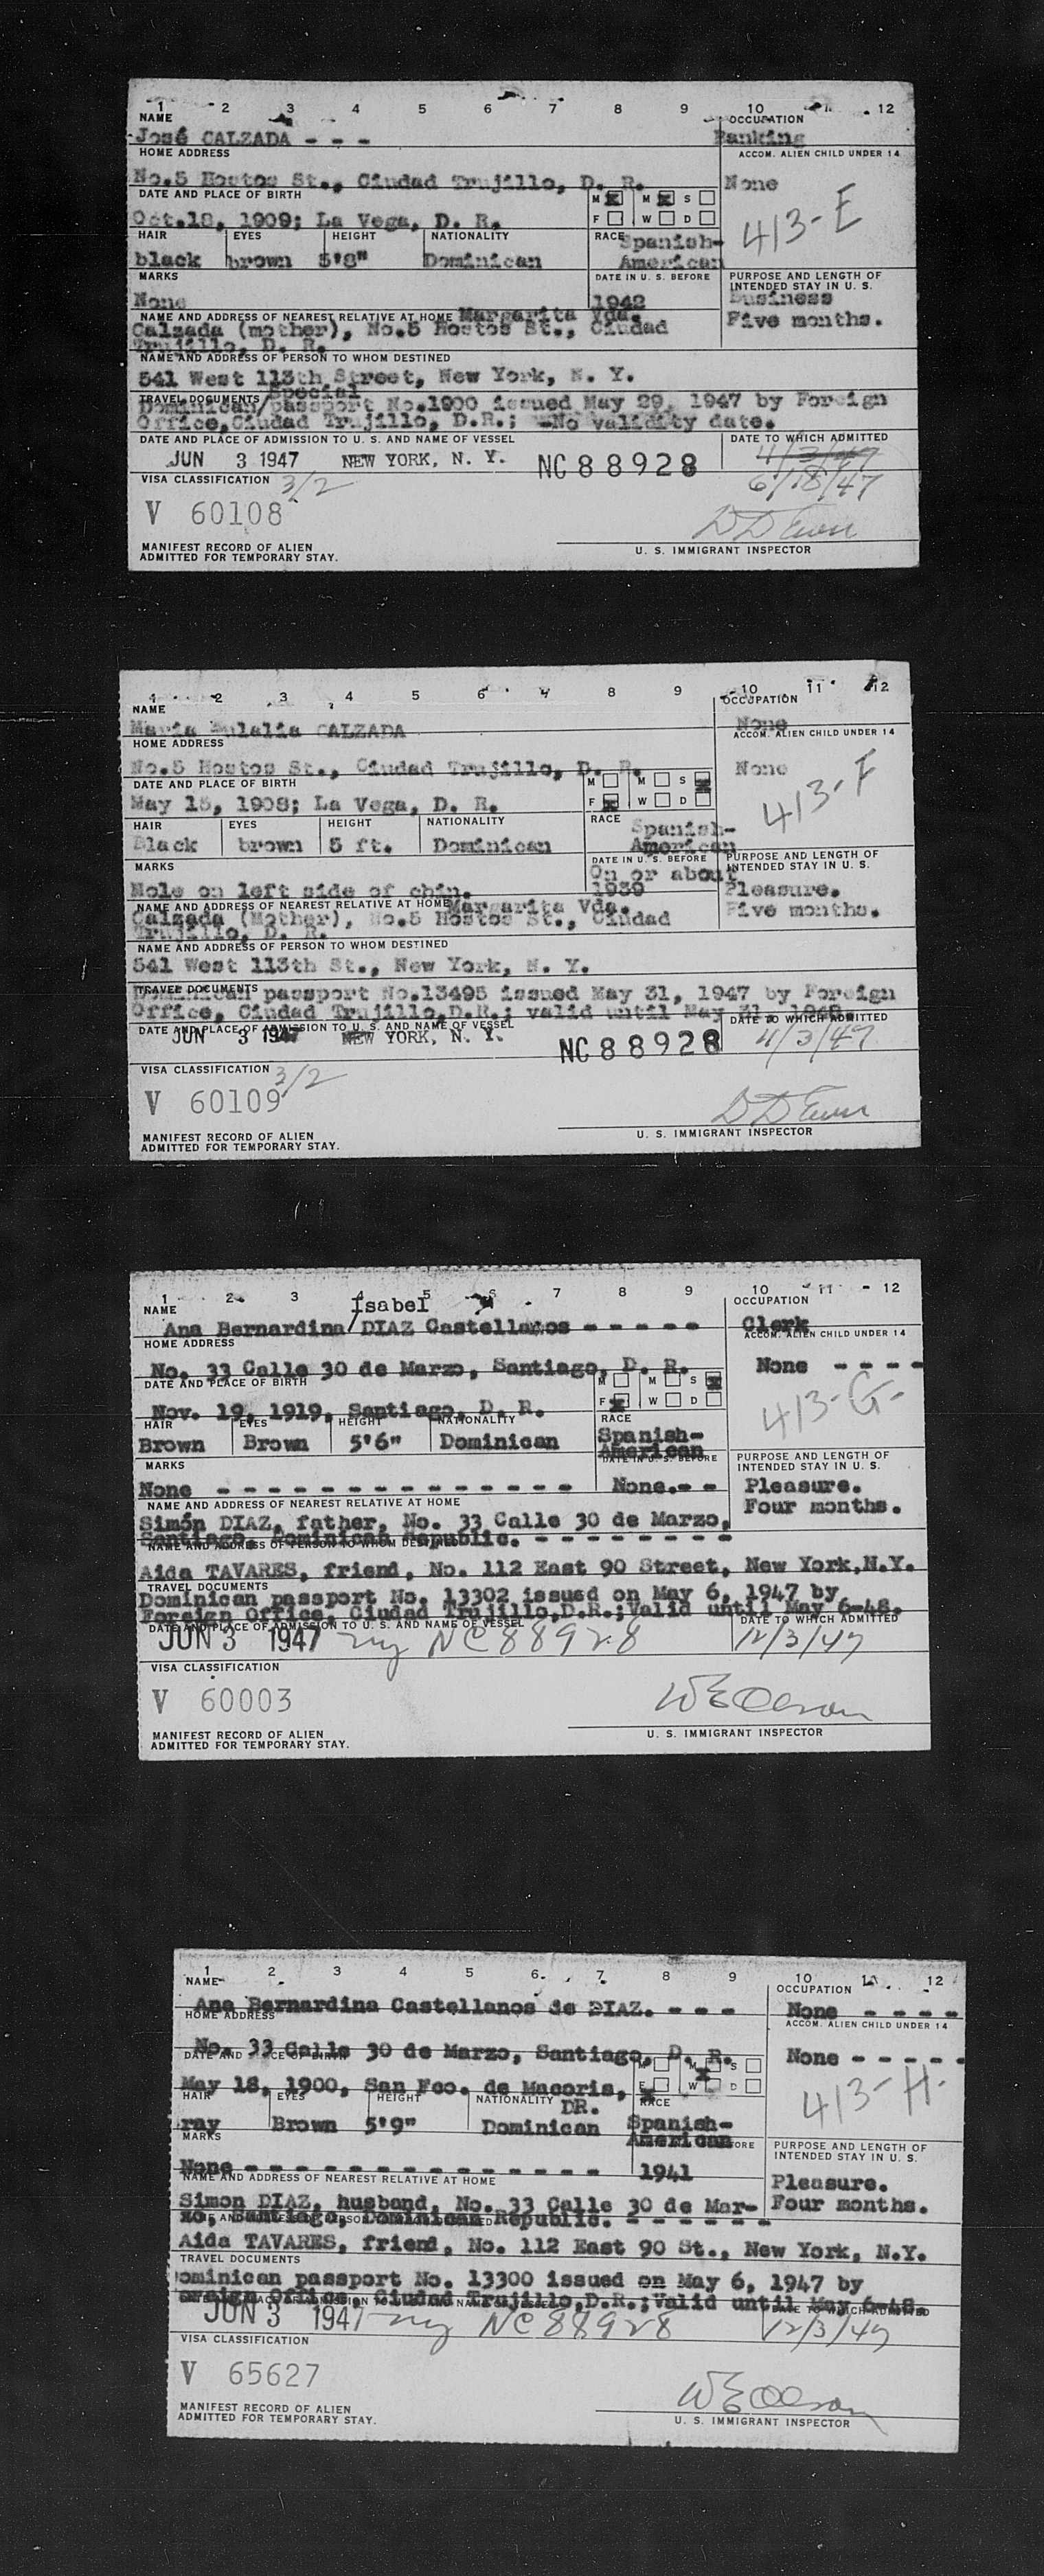 1 2 3 4 5 6 7 8 9 10 11 12
NAME OCCUPATION
José CALZADA - - - Banking
HOME ADDRESS ACCOM. ALIEN CHILD UNDER 14
No.5 Hostos St., Ciudad Trujillo, D. R. None
DATE AND PLACE OF BIRTH M M S 413-E
Oct.18, 1909; La Vega, D. R. F W D
HAIR EYES HEIGHT NATIONALITY RACE Spanish-
black brown 5'8" Dominican American
MARKS DATE IN U. S. BEFORE PURPOSE AND LENGTH OF INTENDED STAY IN U. S.
None 1942 Business
NAME AND ADDRESS OF NEAREST RELATIVE AT HOME Margarita Vda. Five months.
Calzada (mother), No.5 Hostos St., Ciudad
Trujillo, D. R.
NAME AND ADDRESS OF PERSON TO WHOM DESTINED
541 West 113th Street, New York, N. Y.
TRAVEL DOCUMENTS Special
Dominican/passport No.1900 issued May 29, 1947 by Foreign
Office,Ciudad Trujillo, D.R.; -No validity date.
DATE AND PLACE OF ADMISSION TO U. S. AND NAME OF VESSEL DATE TO WHICH ADMITTED
JUN 3 1947 NEW YORK, N. Y. NC88928 6/18/47
VISA CLASSIFICATION 3/2
V 60108
MANIFEST RECORD OF ALIEN
ADMITTED FOR TEMPORARY STAY. U. S. IMMIGRANT INSPECTOR
1 2 3 4 5 6 7 8 9 10 11 12
NAME OCCUPATION
Maria Eulalia CALZADA None
HOME ADDRESS ACCOM. ALIEN CHILD UNDER 14
No.5 Hostos St., Ciudad Trujillo, D. R. None
DATE AND PLACE OF BIRTH M M S 413-F
May 15, 1908; La Vega, D. R. F W D
HAIR EYES HEIGHT NATIONALITY RACE Spanish-
Black brown 5 ft. Dominican American
MARKS DATE IN U. S. BEFORE PURPOSE AND LENGTH OF INTENDED STAY IN U. S.
On or about
Mole on left side of chin. 1939 Pleasure.
NAME AND ADDRESS OF NEAREST RELATIVE AT HOME Margarita Vda. Five months.
Calzada (Mother), No.5 Hostos St., Ciudad
Trujillo, D. R.
NAME AND ADDRESS OF PERSON TO WHOM DESTINED
541 West 113th St., New York, N. Y.
TRAVEL DOCUMENTS
Dominican passport No.13495 issued May 31, 1947 by Foreign
Office, Ciudad Trujillo,D.R.; valid until May 31, 1948.
DATE AND PLACE OF ADMISSION TO U. S. AND NAME OF VESSEL DATE TO WHICH ADMITTED
JUN 3 1947 NEW YORK, N. Y. NC88928 11/3/47
VISA CLASSIFICATION 3/2
V 60109
MANIFEST RECORD OF ALIEN
ADMITTED FOR TEMPORARY STAY. U. S. IMMIGRANT INSPECTOR
1 2 3 4 5 6 7 8 9 10 11 12
NAME Isabel OCCUPATION
Ana Bernardina/DIAZ Castellanos - - - - - Clerk
HOME ADDRESS ACCOM. ALIEN CHILD UNDER 14
No. 33 Calle 30 de Marzo, Santiago, D. R. None - - - -
DATE AND PLACE OF BIRTH M M S 413-G-
Nov. 19, 1919, Santiago, D. R. F W D
HAIR EYES HEIGHT NATIONALITY RACE
Brown Brown 5'6" Dominican Spanish-
American
MARKS DATE IN U. S. BEFORE PURPOSE AND LENGTH OF INTENDED STAY IN U. S.
None - - - - - - - - - - - - - - None.- - Pleasure.
NAME AND ADDRESS OF NEAREST RELATIVE AT HOME Four months.
Simón DIAZ, father, No. 33 Calle 30 de Marzo,
Santiago, Dominican Republic. - - - - - - - -
NAME AND ADDRESS OF PERSON TO WHOM DESTINED
Aida TAVARES, friend, No. 112 East 90 Street, New York,N.Y.
TRAVEL DOCUMENTS
Dominican passport No. 13302 issued on May 6, 1947 by
Foreign Office, Ciudad Trujillo,D.R.;Valid until May 6-48.
DATE AND PLACE OF ADMISSION TO U. S. AND NAME OF VESSEL DATE TO WHICH ADMITTED
JUN 3 1947 ny NC88928 12/3/47
VISA CLASSIFICATION
V 60003 WE Olson
MANIFEST RECORD OF ALIEN
ADMITTED FOR TEMPORARY STAY. U. S. IMMIGRANT INSPECTOR
1 2 3 4 5 6 7 8 9 10 11 12
NAME OCCUPATION
Ana Bernardina Castellanos de DIAZ. - - - None - - - -
HOME ADDRESS ACCOM. ALIEN CHILD UNDER 14
No. 33 Calle 30 de Marzo, Santiago, D. R. None - - - - -
DATE AND PLACE OF BIRTH M M S 413-H-
May 18, 1900, San Fco. de Macoris, F W D
HAIR EYES HEIGHT NATIONALITY DR. RACE
ray Brown 5'9" Dominican Spanish-
American
MARKS PURPOSE AND LENGTH OF INTENDED STAY IN U. S.
None - - - - - - - - - - - - - 1941 Pleasure.
NAME AND ADDRESS OF NEAREST RELATIVE AT HOME
Simon DIAZ, husband, No. 33 Calle 30 de Mar- Four months.
zo, Santiago, Dominican Republic. - - - - - -
Aida TAVARES, friend, No. 112 East 90 St., New York, N.Y.
TRAVEL DOCUMENTS
ominican passport No. 13300 issued on May 6, 1947 by
oreign Office, Ciudad Trujillo,D.R.;Valid until May 6-48.
DATE TO WHICH ADMITTED
JUN 3 1947 ny NC88928 12/3/47
VISA CLASSIFICATION
V 65627 WE Olson
MANIFEST RECORD OF ALIEN
ADMITTED FOR TEMPORARY STAY. U. S. IMMIGRANT INSPECTOR